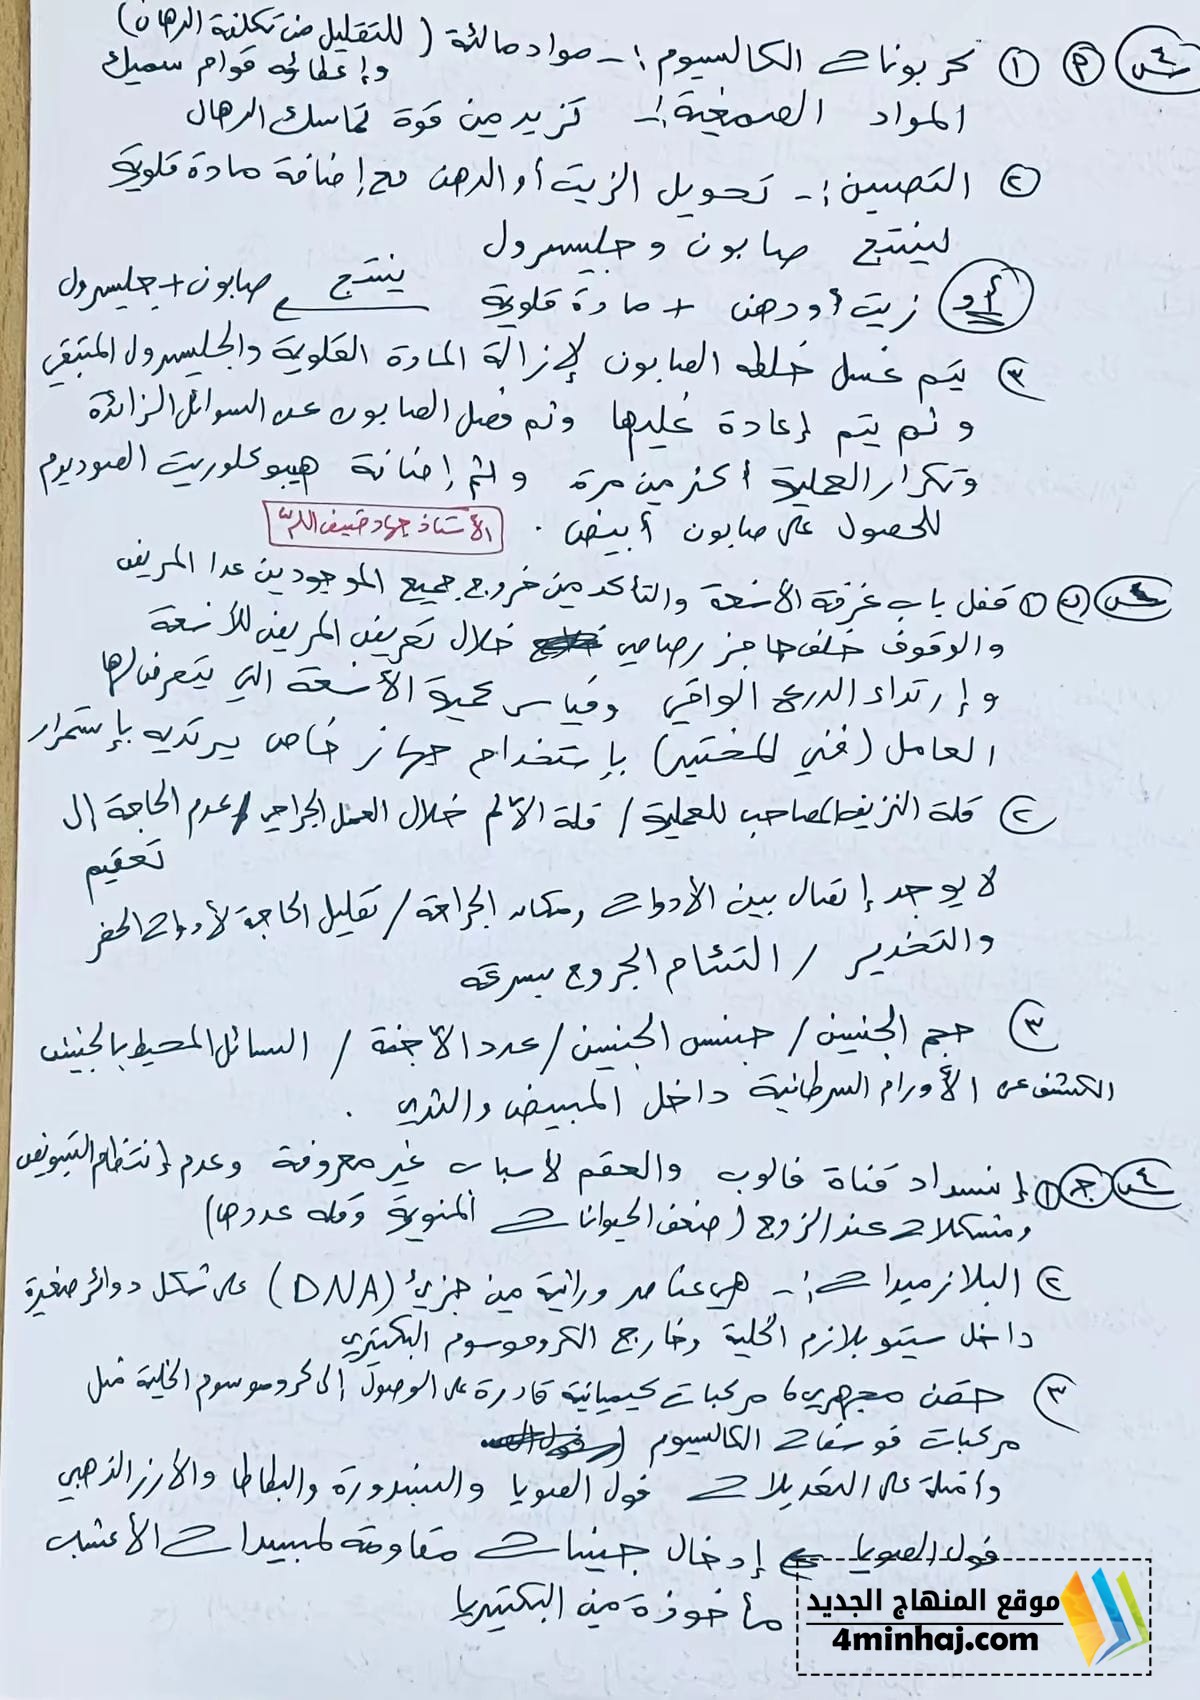 س٤ م ① كربونات الكالسيوم :- مواد مالئة ( للتقليل من تكلفة الدهان)
وإعطائه قوام سميك
المواد الصمغية :- تزيد من قوة تماسك الدهان
② التصبين :- تحويل الزيت أو الدهن مع إضافة مادة قلوية
لينتج صابون وجليسرول
أو زيت أو دهن + مادة قلوية ينتج صابون + جليسرول
③ يتم غسل خلطه الصابون لإزالة المادة القلوية والجليسرول المتبقي
وثم يتم إعادة غليها وثم فصل الصابون عن السوائل الزائدة
وتكرار العملية أكثر من مرة وثم إضافة هيبوكلوريت الصوديوم
للحصول على صابون أبيض .
الأستاذ جهاد ضيف الله
س٤ ب ① قفل باب غرفة الأشعة والتأكد من خروج جميع الموجودين عدا المريض
والوقوف خلف حاجز رصاصي خلال تعريض المريض للأشعة
وإرتداء الدرع الواقي وقياس كمية الأشعة التي يتعرض لها
العامل (فني المختبر) بإستخدام جهاز خاص يرتديه بإستمرار
② قلة النزيف المصاحب للعملية / قلة الألم خلال العمل الجراحي / عدم الحاجة إلى
تعقيم
لا يوجد إتصال بين الأدوات ومكان الجراحة / تقليل الحاجة لأدوات الحفر
والتخدير / التئام الجروح بسرعة
③ حجم الجنين / جنس الجنين / عدد الأجنة / السائل المحيط بالجنين
الكشف عن الأورام السرطانية داخل المبيض والثدي .
س٤ ج ① إنسداد قناة فالوب والعقم لأسباب غير معروفة وعدم إنتظام التبويض
ومشكلات عند الزوج (ضعف الحيوانات المنوية وقله عددها)
② البلازميدات :- هي عناصر وراثية من جزيئ (DNA) على شكل دوائر صغيرة
داخل سيتوبلازم الخلية وخارج الكروموسوم البكتيري
③ حقن مجهري، مركبات كيميائية قادرة على الوصول إلى كروموسوم الخلية مثل
مركبات فوسفات الكالسيوم
وأمثلة على التعديلات فول الصويا والبندورة والبطاطا والأرز الذهبي
فول الصويا ← إدخال جينات مقاومة لمبيدات الأعشاب
مأخوذة من البكتيريا
موقع المنهاج الجديد
4minhaj.com